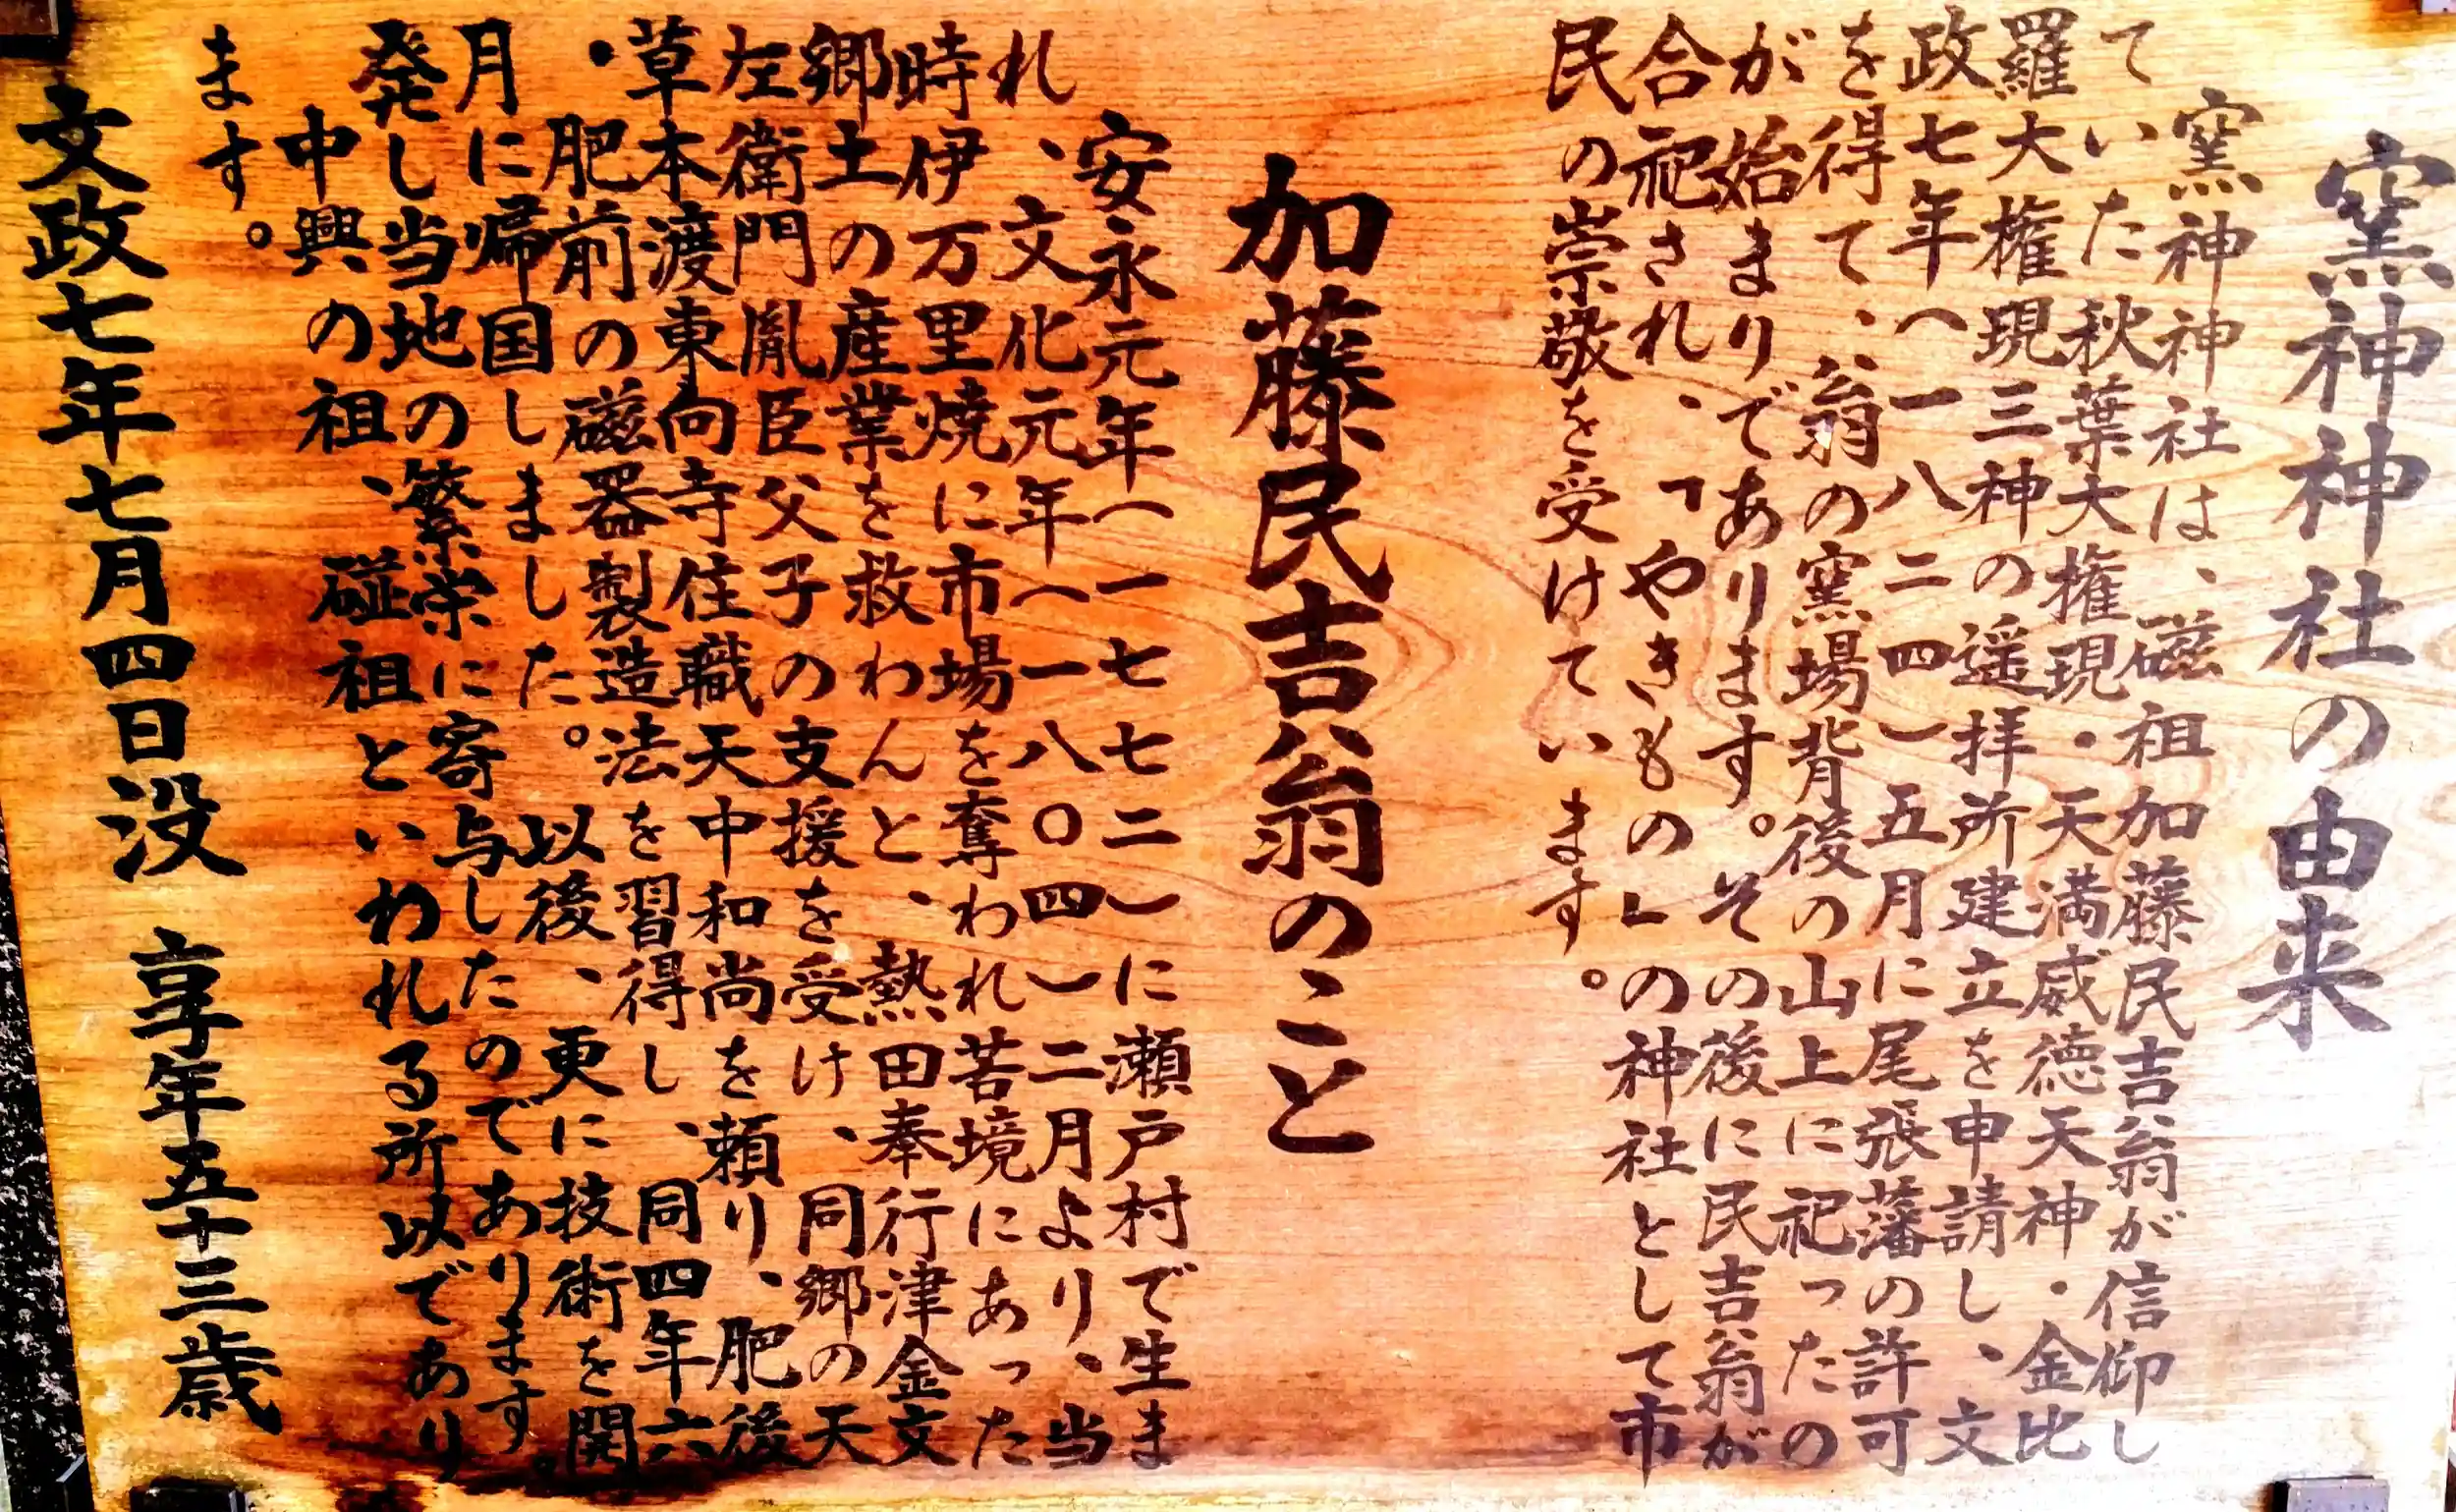 窯神神社の由来
窯神神社は、磁祖加藤民吉翁が信仰し
ていた秋葉大権現・天満威徳天神・金比
羅大権現三神の遥拝所建立を申請し、文
政七年(一八二四)五月に尾張藩の許可
を得て、翁の窯場背後の山上に祀ったの
が始まりであります。その後に民吉翁が
合祀され、「やきもの」の神社として市
民の崇敬を受けています。
加藤民吉翁のこと
安永元年(一七七二)に瀬戸村で生ま
れ、文化元年(一八〇四)二月より、当
時伊万里焼に市場を奪われ苦境にあった
郷土の産業を救わんと、熱田奉行津金文
左衛門胤臣父子の支援を受け、同郷の天
草本渡東向寺住職天中和尚を頼り、肥後
・肥前の磁器製造法を習得し、同四年六
月に帰国しました。以後、更に技術を開
発し当地の繁栄に寄与したのであります。
中興の祖、磁祖といわれる所以であり
ます。
文政七年七月四日没 享年五十三歳